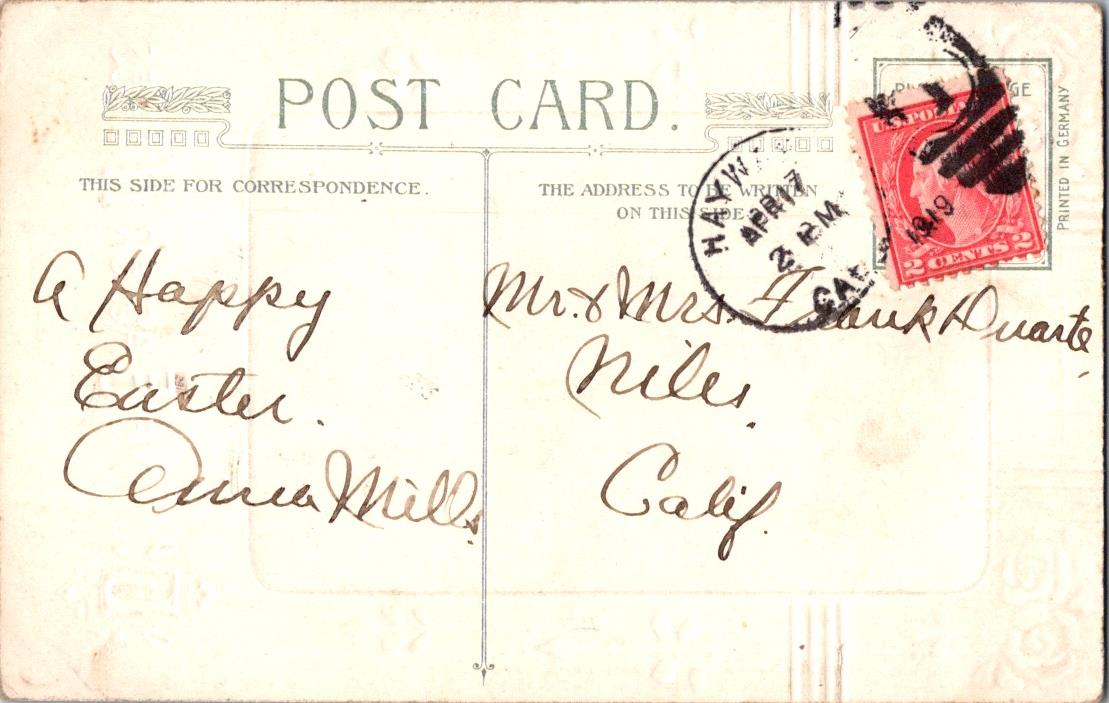 POST CARD.
THIS SIDE FOR CORRESPONDENCE.
THE ADDRESS TO BE WRITTEN
ON THIS SIDE
PRINTED IN GERMANY
U.S. POSTAGE
2 CENTS 2
APR 17
2 PM
1919
CAL
A Happy
Easter.
Anna Mills
Mr. & Mrs. Frank Duarte,
Niles.
Calif.